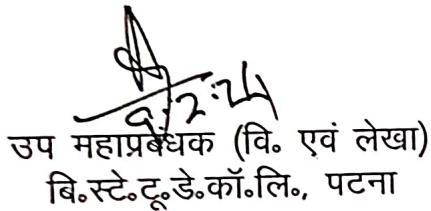 9/2:24
उप महाप्रबंधक (वि॰ एवं लेखा)
बि॰स्टे॰टू॰डे॰कॉ॰लि॰, पटना